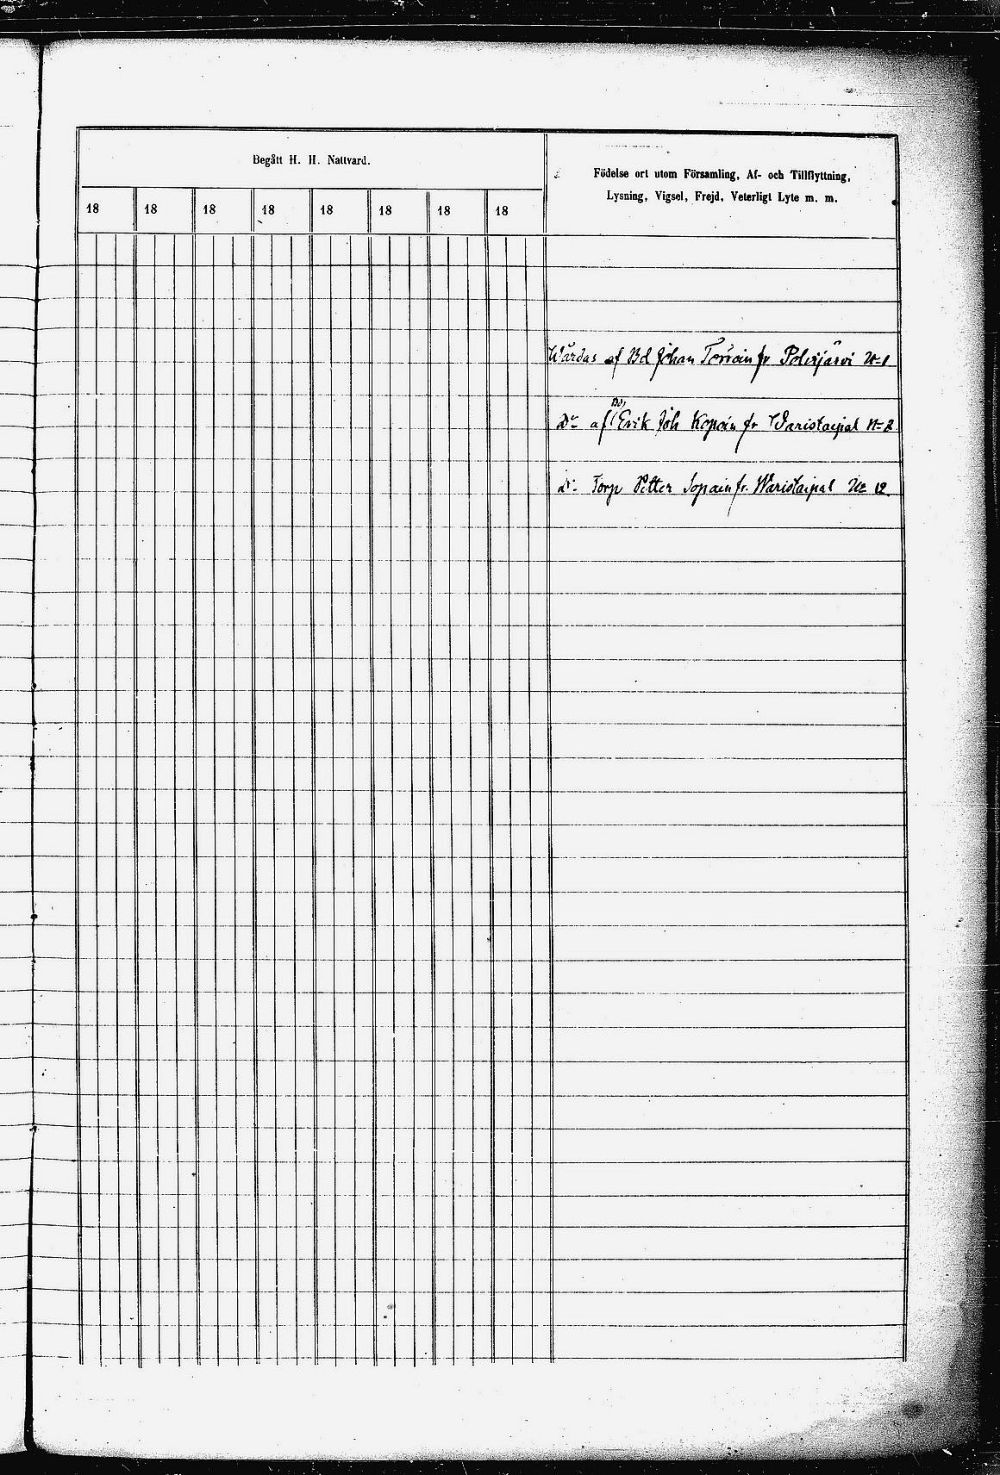 Begått H. H. Nattvard.
Födelse ort utom Församling, Af- och Tillflyttning,
Lysning, Vigsel, Frejd, Veterligt Lyte m. m.
18 18 18 18 18 18 18 18
Wårdas af Bd Johan fr Polvijärvi N=1
Do af Bd, Erik Joh Kopoin fr Varistaipal N=2
Do Torp Petter Sopain fr. Waristaipal No 12